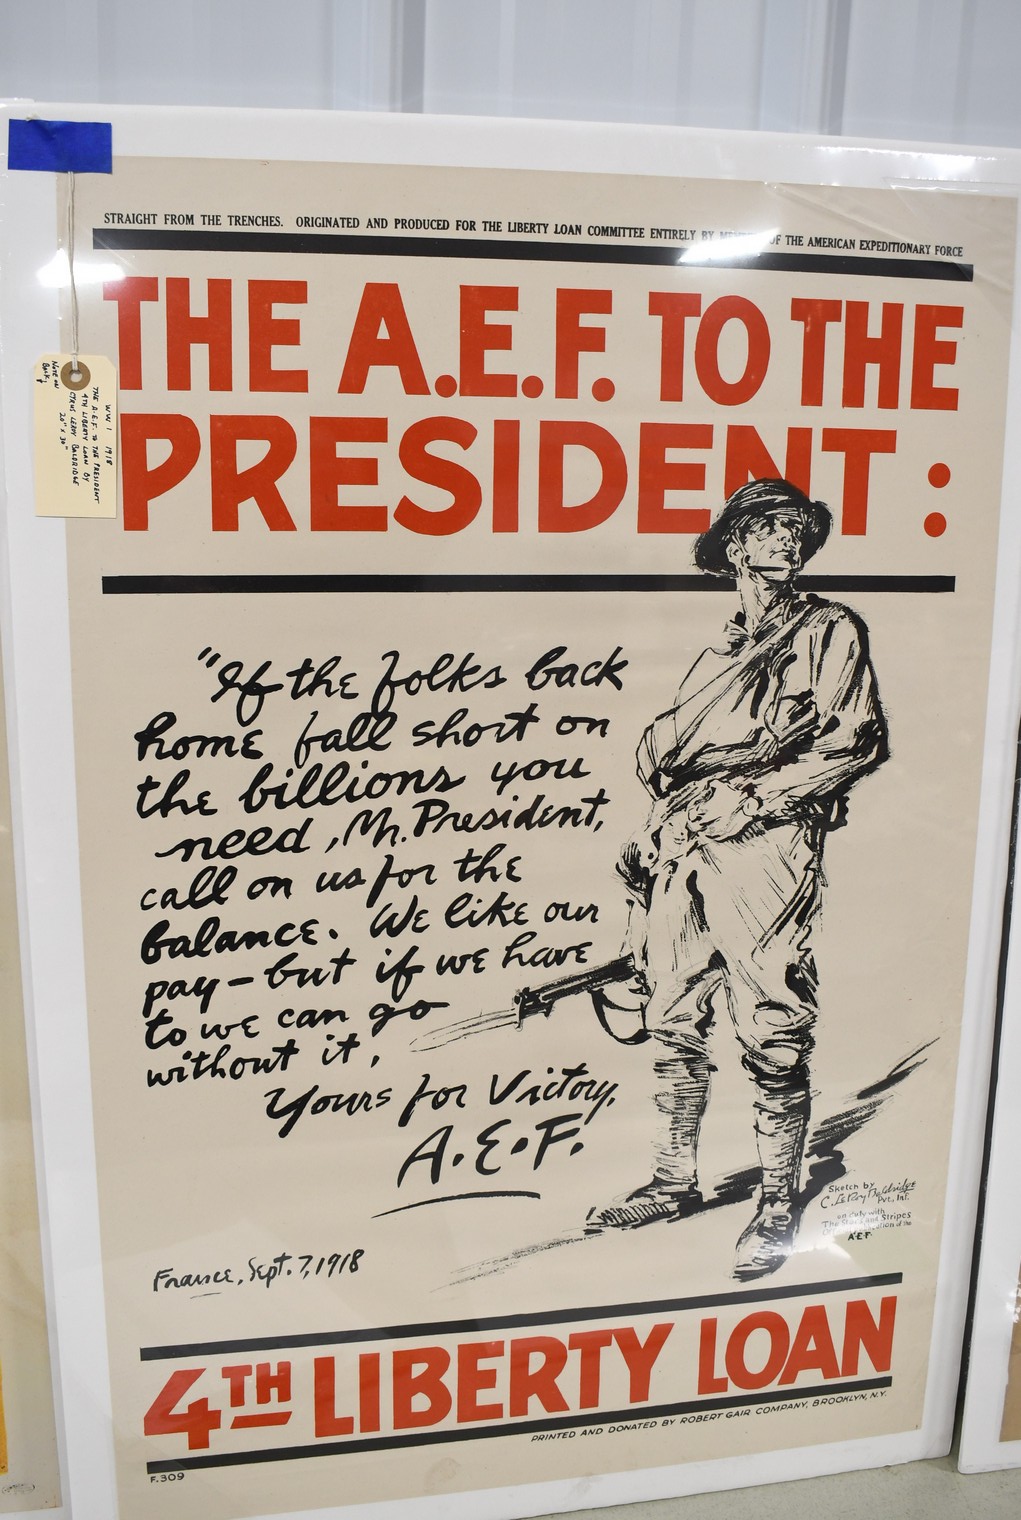 STRAIGHT FROM THE TRENCHES. ORIGINATED AND PRODUCED FOR THE LIBERTY LOAN COMMITTEE ENTIRELY BY OF THE AMERICAN EXPEDITIONARY FORCE
THE A.E.F. TO THE
PRESIDENT:
WW 1 1918
THE A.E.F. TO THE PRESIDENT
4TH LIBERTY LOAN BY
CYRUS LEROY BALDRIDGE
20" X 30"
NOTE ON
BACK
"If the folks back
home fall short on
the billions you
need, Mr. President,
call on us for the
balance. We like our
pay—but if we have
to we can go
without it,
Yours for Victory,
A.E.F.
Sketch by
C. LeRoy Baldridge
Pvt., Inf.
on duty with
The Stars and Stripes
of the
A.E.F.
France, Sept. 7, 1918
4TH LIBERTY LOAN
PRINTED AND DONATED BY ROBERT GAIR COMPANY, BROOKLYN, N.Y.
F.309